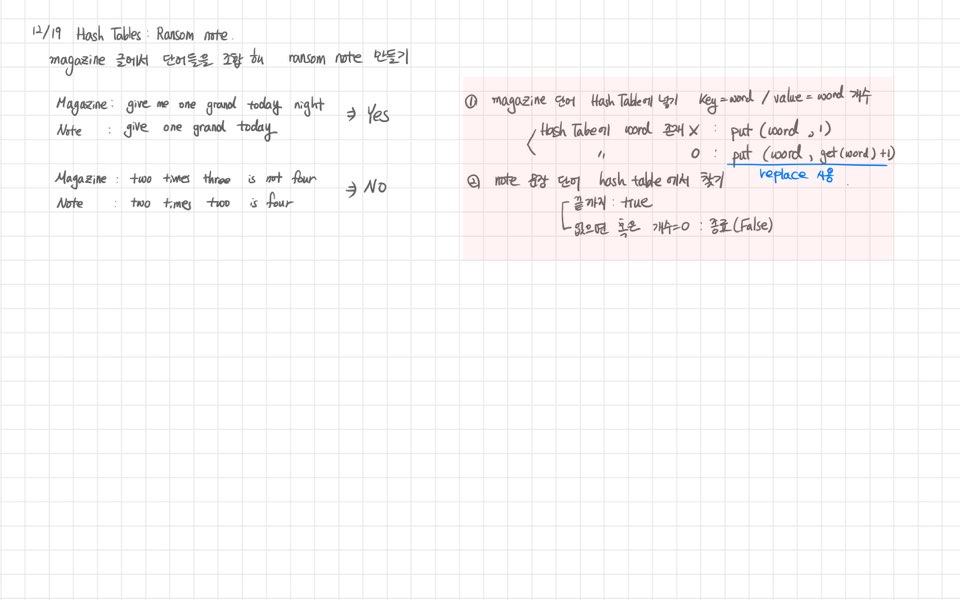 12/19 Hash Tables : Ransom note.
magazine 글에서 단어들을 조합해 ransom note 만들기
Magazine : give me one grand today night
Note : give one grand today
⇒ Yes
Magazine : two times three is not four
Note : two times two is four
⇒ No
① magazine 단어 Hash Table에 넣기 key = word / value = word 개수
Hash Tabe에 word 존재 X : put (word , 1)
〃 O : put (word , get(word) +1)
replace 사용
② note 문장 단어 hash table 에서 찾기
끝까지 : true
없으면 혹은 개수=0 : 종료(False)